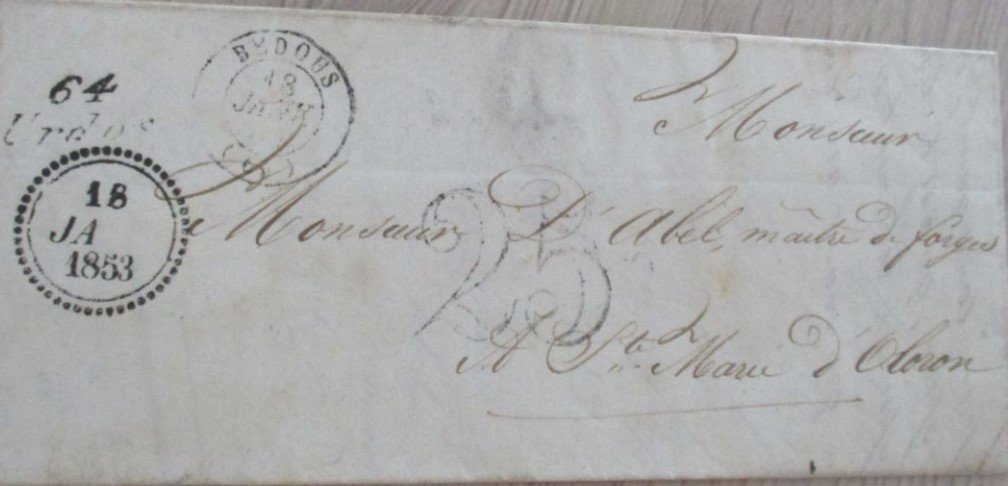 64
Urdos
18
JA
1853
BEDOUS
18
JANV.
25
Monsieur
Monsieur D'Abel, maître de forges
A Ste Marie d'Oloron